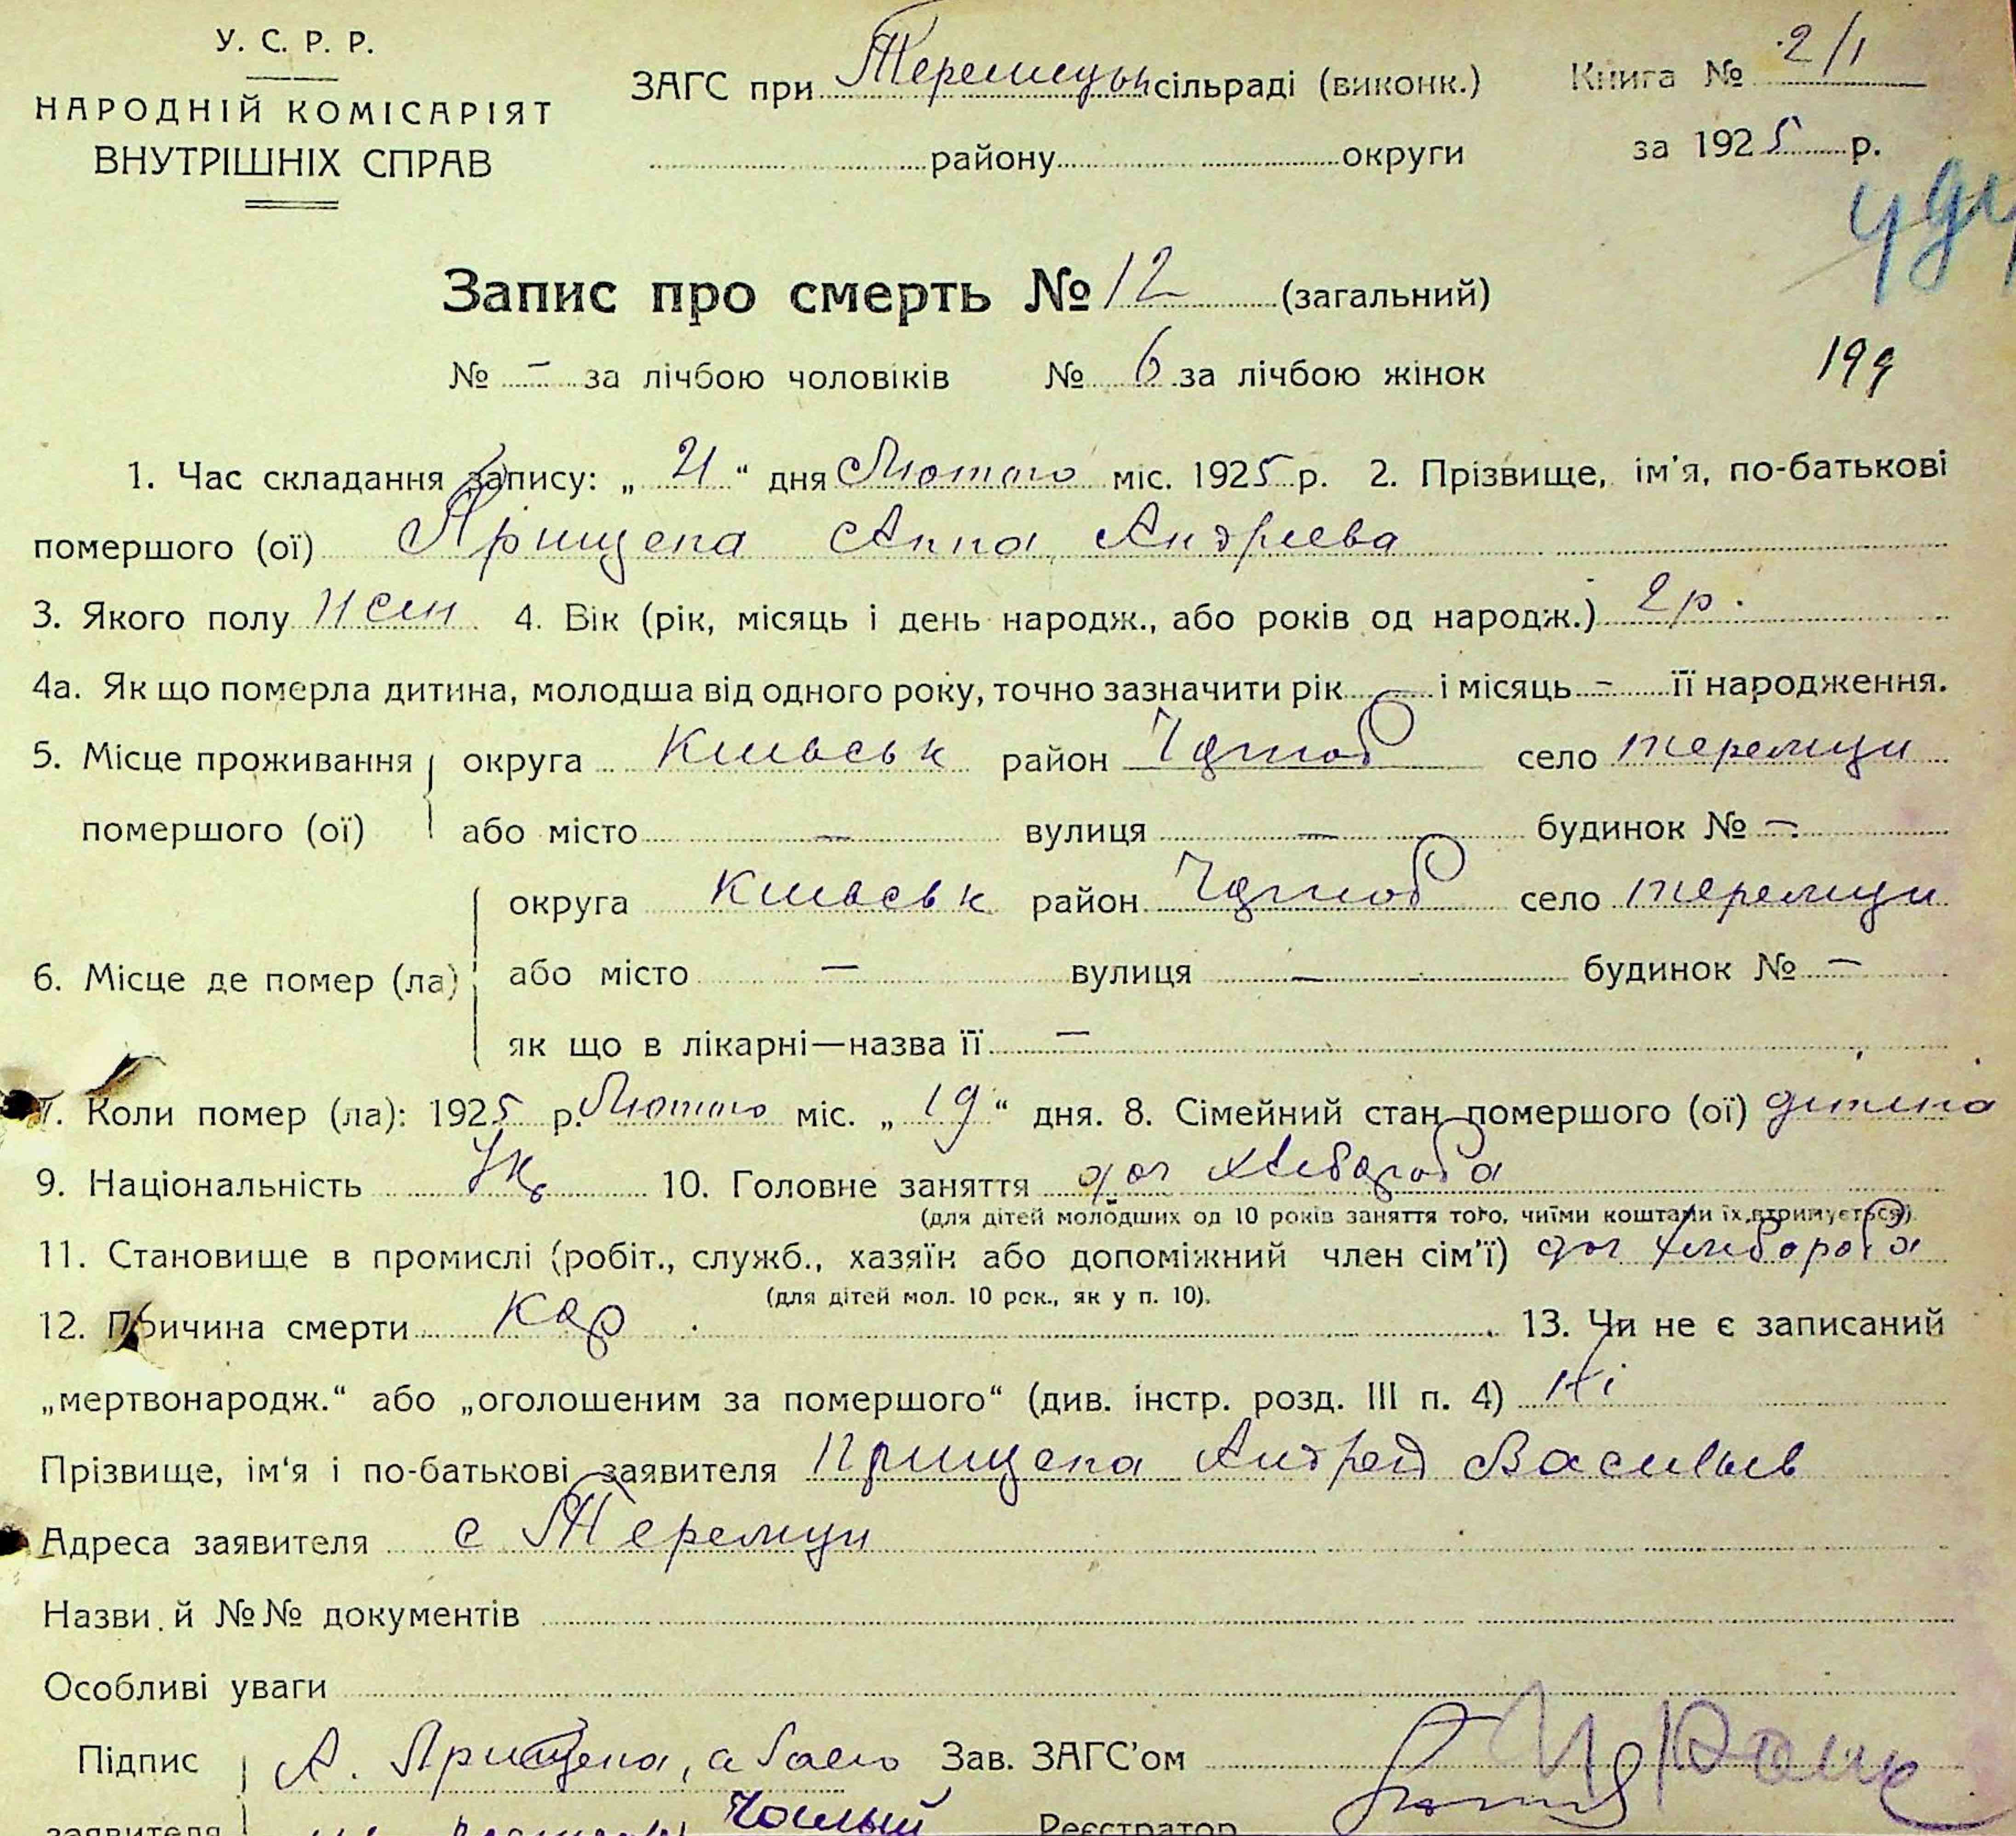 У. С. Р. Р.
НАРОДНІЙ КОМІСАРІЯТ
ВНУТРІШНІХ СПРАВ
ЗАГС при Теремецьк сільраді (виконк.)
району округи
Книга № 2/1
за 1925 р.
Запис про смерть № 12 (загальний)
№ – за лічбою чоловіків № 6 за лічбою жінок
199
1. Час складання запису: „21“ дня Лютого міс. 1925 р. 2. Прізвище, ім'я, по-батькові
помершого (ої) Прищепа Анна Андреева
3. Якого полу жен 4. Вік (рік, місяць і день народж., або років од народж.) 2 р.
4а. Як що померла дитина, молодша від одного року, точно зазначити рік і місяць – її народження.
5. Місце проживання округа Киівськ район Чорноб село Теремци
помершого (ої) або місто — вулиця — будинок № —
округа Киівськ район Чорноб село Теремци
6. Місце де помер (ла) або місто — вулиця — будинок № —
як що в лікарні—назва її —
7. Коли помер (ла): 1925 р. Лютого міс. „19“ дня. 8. Сімейний стан помершого (ої) дитина
9. Національність Укр 10. Головне заняття доч хлибороба
(для дітей молодших од 10 років заняття того, чиїми коштами їх втримується)
11. Становище в промислі (робіт., служб., хазяїн або допоміжний член сім'ї) доч хлибороба
(для дітей мол. 10 рок., як у п. 10).
12. Причина смерти Кор 13. Чи не є записаний
„мертвонародж.“ або „оголошеним за помершого“ (див. інстр. розд. III п. 4) Ні
Прізвище, ім'я і по-батькові заявителя Прищепа Андрей Васильев
Адреса заявителя с Теремци
Назви й №№ документів
Особливі уваги
Підпис А. Прищепа, а Зав. ЗАГС'ом
заявителя Реєстратор